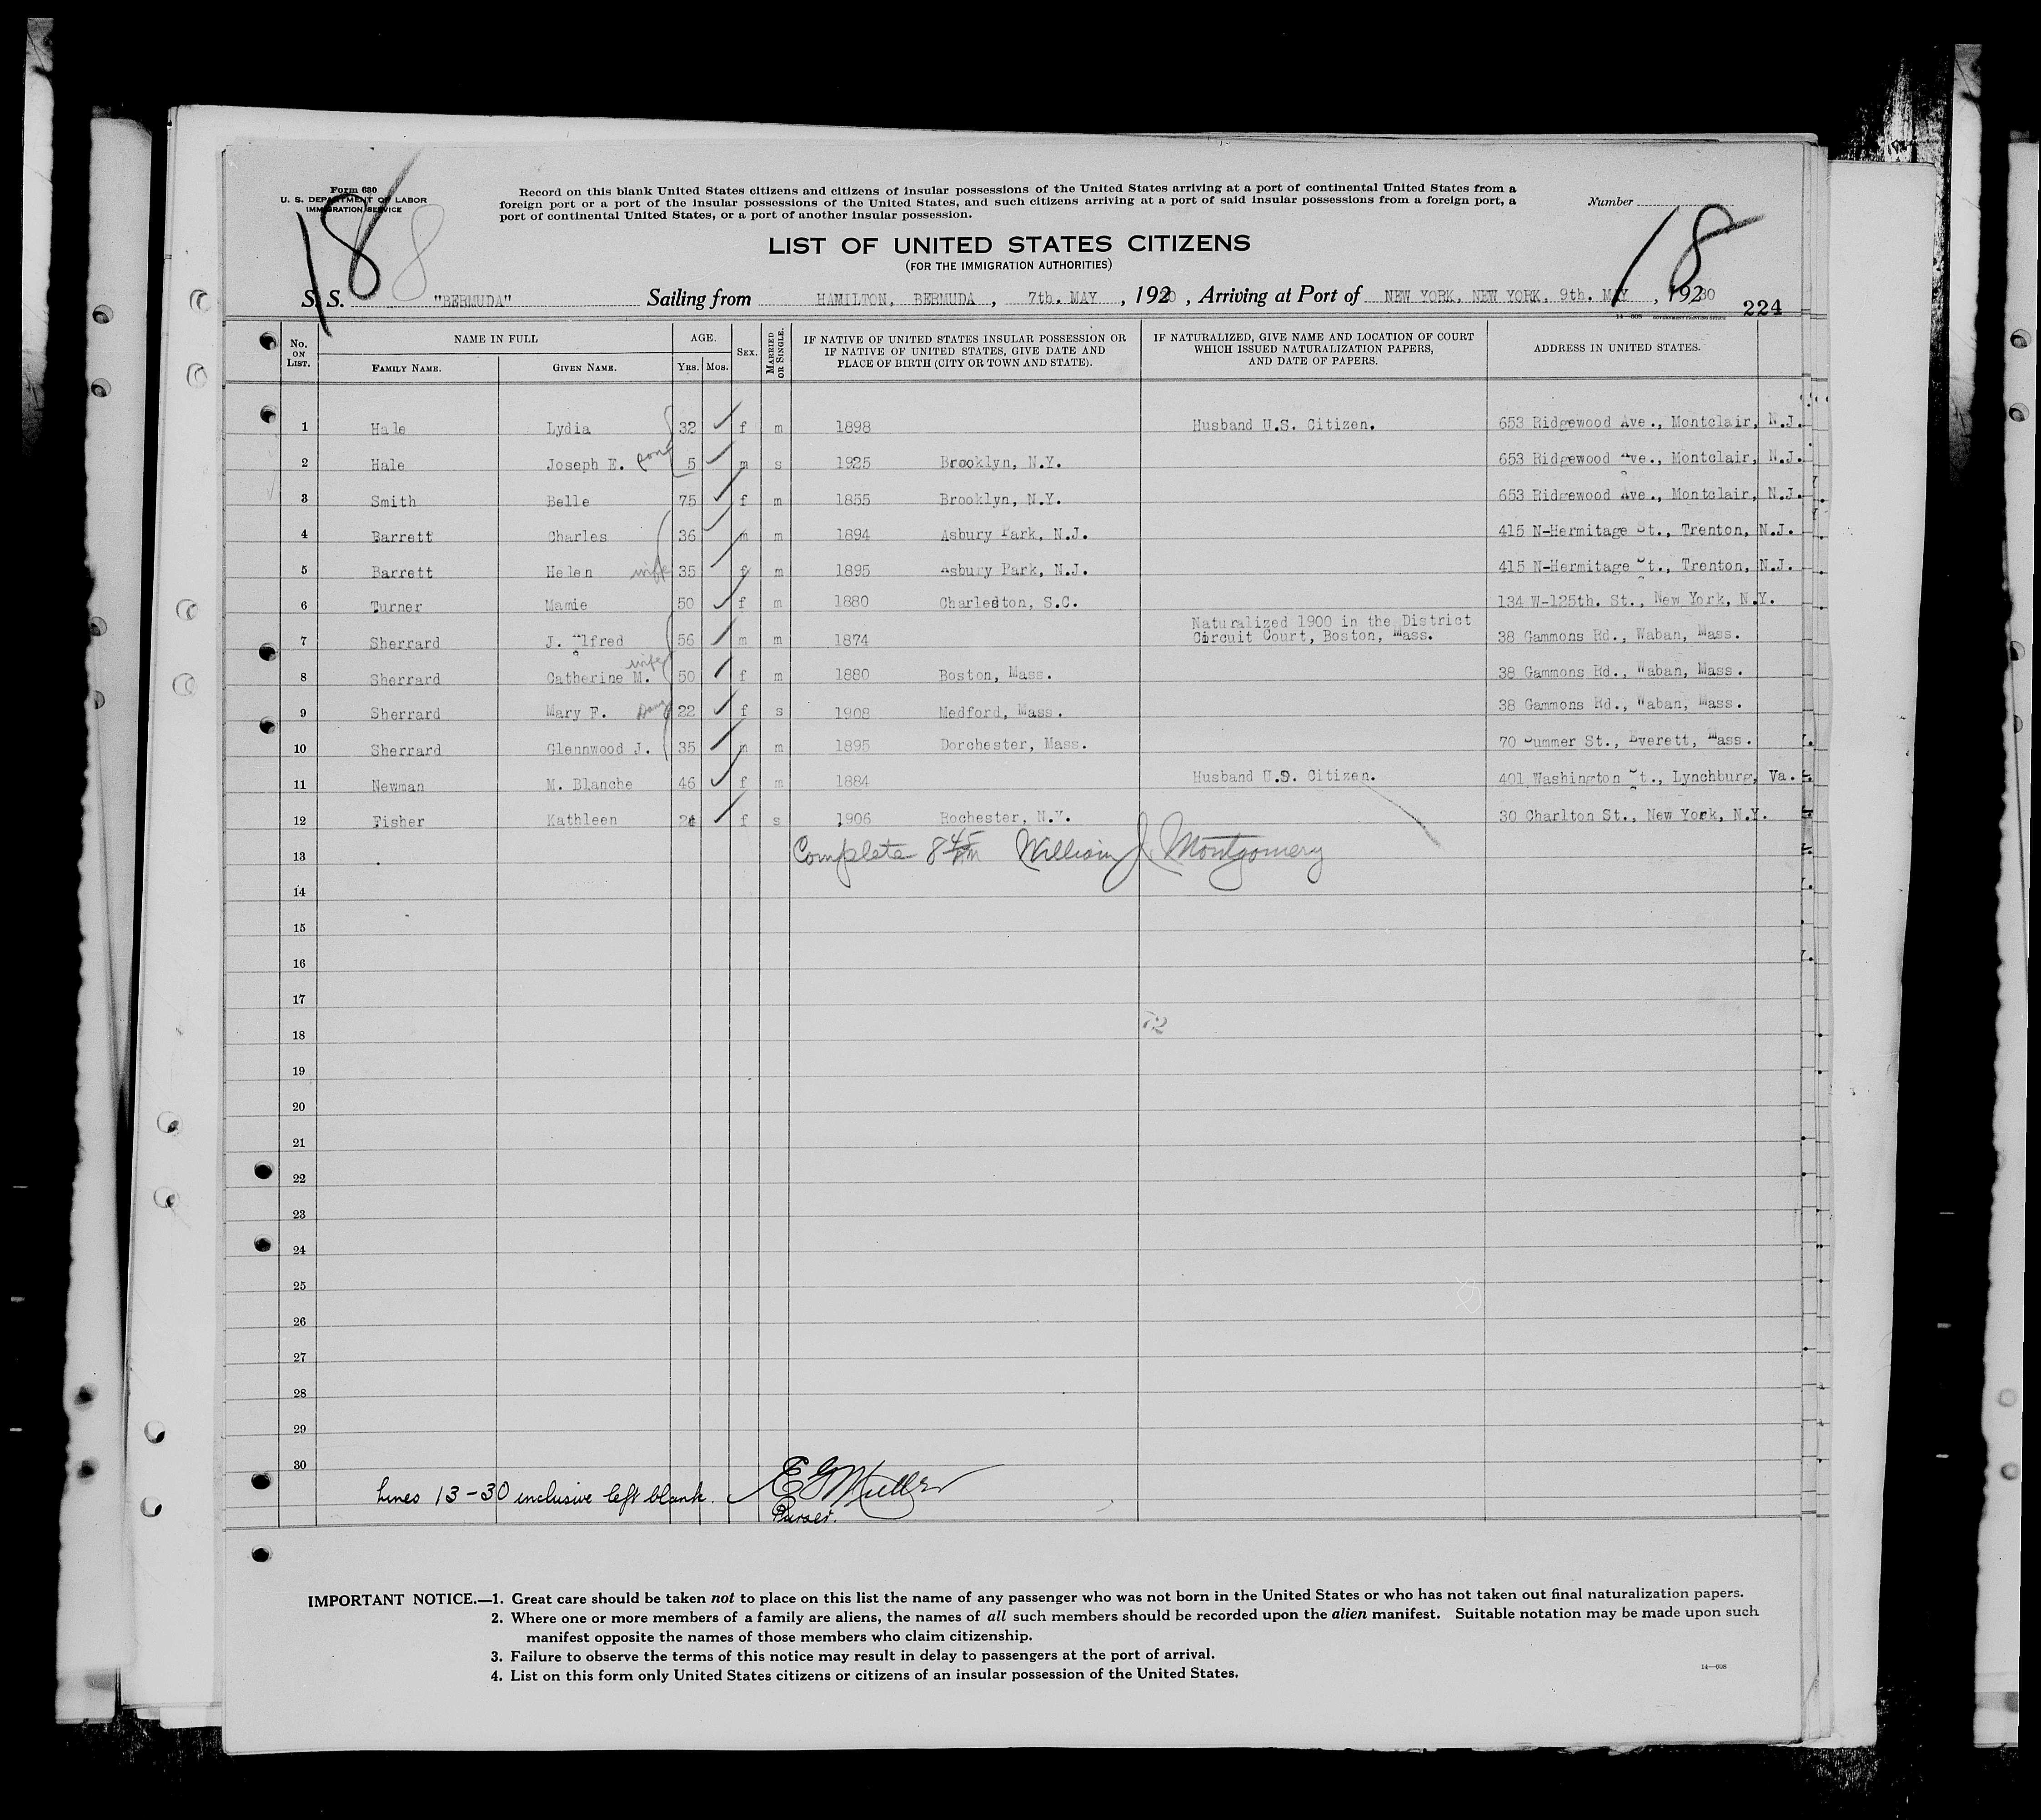 Form 630
U. S. DEPARTMENT OF LABOR
IMMIGRATION SERVICE
Record on this blank United States citizens and citizens of insular possessions of the United States arriving at a port of continental United States from a
foreign port or a port of the insular possessions of the United States, and such citizens arriving at a port of said insular possessions from a foreign port, a
port of continental United States, or a port of another insular possession.
Number
18 8
18
LIST OF UNITED STATES CITIZENS
(FOR THE IMMIGRATION AUTHORITIES)
S. S. "BERMUDA" Sailing from HAMILTON, BERMUDA , 7th. MAY , 1930 , Arriving at Port of NEW YORK, NEW YORK. 9th. MAY , 19230
224
No. ON LIST. NAME IN FULL AGE. SEX. MARRIED OR SINGLE. IF NATIVE OF UNITED STATES INSULAR POSSESSION OR IF NATIVE OF UNITED STATES, GIVE DATE AND PLACE OF BIRTH (CITY OR TOWN AND STATE). IF NATURALIZED, GIVE NAME AND LOCATION OF COURT WHICH ISSUED NATURALIZATION PAPERS, AND DATE OF PAPERS. ADDRESS IN UNITED STATES.
FAMILY NAME. GIVEN NAME. YRS. MOS.
1 Hale Lydia 32 f m 1898 Husband U.S. Citizen. 653 Ridgewood Ave., Montclair, N.J.
2 Hale Joseph E. son 5 m s 1925 Brooklyn, N.Y. 653 Ridgewood Ave., Montclair, N.J.
3 Smith Belle 75 f m 1855 Brooklyn, N.Y. 653 Ridgewood Ave., Montclair, N.J.
4 Barrett Charles 36 m m 1894 Asbury Park, N.J. 415 N-Hermitage St., Trenton, N.J.
5 Barrett Helen wife 35 f m 1895 Asbury Park, N.J. 415 N-Hermitage St., Trenton, N.J.
6 Turner Mamie 50 f m 1880 Charleston, S.C. 134 W-125th. St., New York, N.Y.
7 Sherrard J. Alfred 56 m m 1874 Naturalized 1900 in the District Circuit Court, Boston, Mass. 38 Gammons Rd., Waban, Mass.
8 Sherrard Catherine M. wife 50 f m 1880 Boston, Mass. 38 Gammons Rd., Waban, Mass.
9 Sherrard Mary F. Dau 22 f s 1908 Medford, Mass. 38 Gammons Rd., Waban, Mass.
10 Sherrard Glennwood J. 35 m m 1895 Dorchester, Mass. 70 Summer St., Everett, Mass.
11 Newman M. Blanche 46 f m 1884 Husband U.S. Citizen. 401 Washington St., Lynchburg, Va.
12 Fisher Kathleen 24 f s 1906 Rochester, N.Y. 30 Charlton St., New York, N.Y.
13 Complete 8 45 AM William J. Montgomery
14
15
16
17
18 72
19
20
21
22
23
24
25
26
27
28
29
30
Lines 13-30 inclusive left blank. E G Muller
Purser.
IMPORTANT NOTICE.—1. Great care should be taken not to place on this list the name of any passenger who was not born in the United States or who has not taken out final naturalization papers.
2. Where one or more members of a family are aliens, the names of all such members should be recorded upon the alien manifest. Suitable notation may be made upon such
manifest opposite the names of those members who claim citizenship.
3. Failure to observe the terms of this notice may result in delay to passengers at the port of arrival.
4. List on this form only United States citizens or citizens of an insular possession of the United States.
14—698